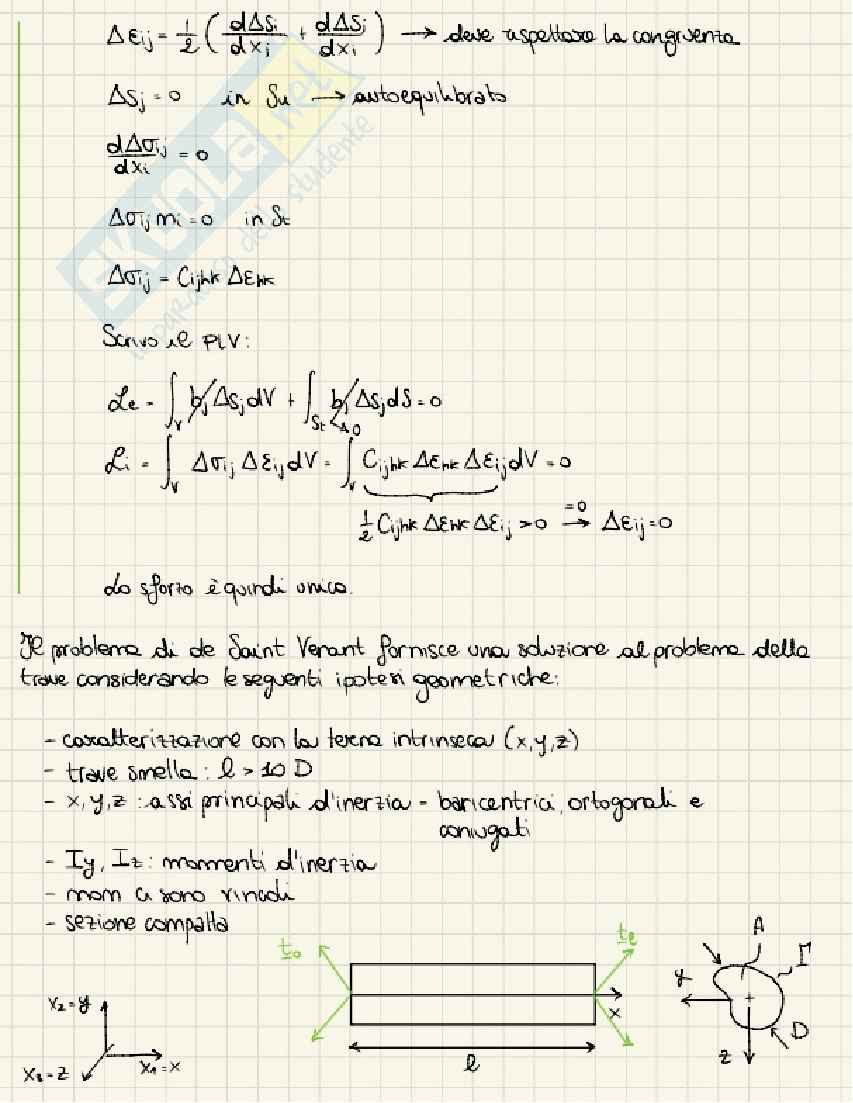 Δεij = 1/2 ( dΔsi/dxj + dΔsj/dxi ) → deve rispettare la congruenza
Δsj = 0 in Su → autoequilibrato
dΔσij/dxi = 0
Δσij ni = 0 in St
Δσij = Cijhk Δεhk
Scrivo il PLV:
Le = ∫V bj Δsj dV + ∫St bj Δsj dS = 0
Li = ∫V Δσij Δεij dV = ∫V Cijhk Δεhk Δεij dV = 0
1/2 Cijhk Δεhk Δεij > 0 =0→ Δεij = 0
Lo sforzo è quindi unico.
Il problema di de Saint Venant fornisce una soluzione al problema della
trave considerando le seguenti ipotesi geometriche:
- caratterizzazione con la terna intrinseca (x,y,z)
- trave snella: l > 10 D
- x,y,z : assi principali d'inerzia - baricentrici, ortogonali e
coniugati
- Iy, Iz: momenti d'inerzia
- non ci sono vincoli
- sezione compatta
t0
tl
A
Γ
y
x
D
z
l
x2=y
x1=x
x3=z
SKUOLA.net
il paradiso dello studente